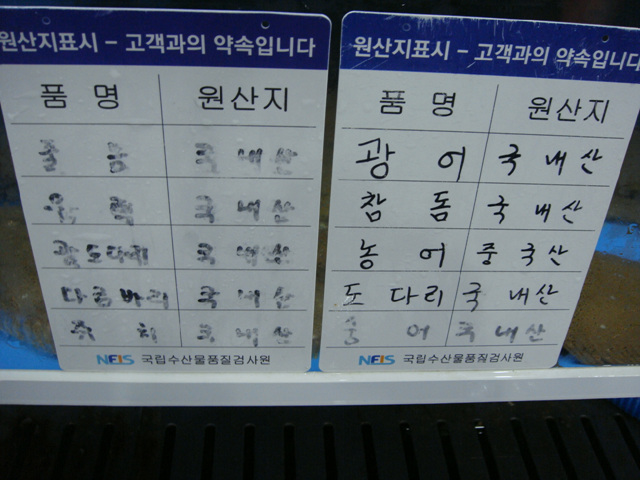 원산지표시 - 고객과의 약속입니다
품 명 원산지
줄 돔 국 내 산
우 럭 국 내 산
국 내 산
다금바리 국 내 산
쥐 치 국 내 산
NFIS 국립수산물품질검사원
원산지표시 - 고객과의 약속입니다
품 명 원산지
광 어 국 내 산
참 돔 국 내 산
농 어 중 국 산
도 다리 국 내 산
숭 어 국 내 산
NFIS 국립수산물품질검사원